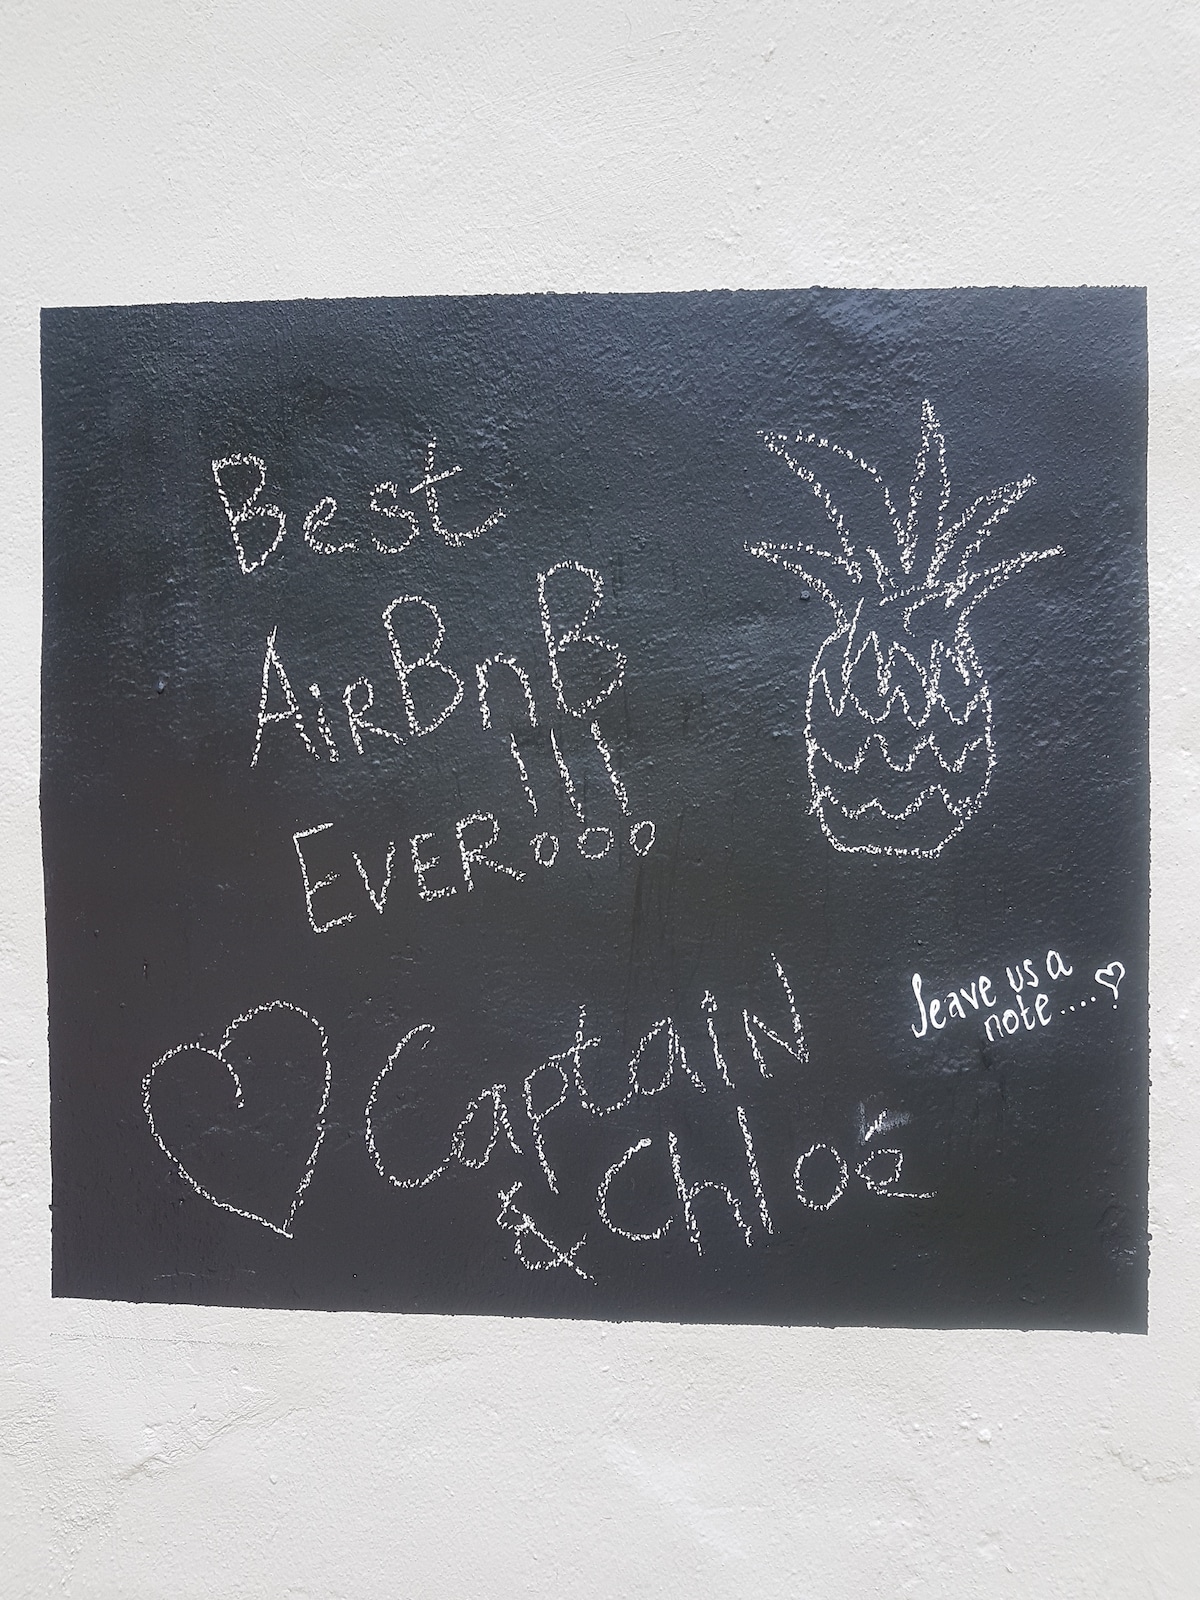 Best
AirBnB
EVER!!!
leave us a
note....
CaptaiN
& Chloé